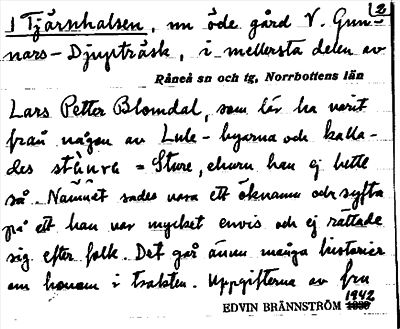 2
1 Tjärnhalsen, nu öde gård V. Gun-
nars-Djupträsk, i mellersta delen av
Råneå sn och tg, Norrbottens län
Lars Petter Blomdal, som lär ha varit
från någon av Lule-byarna och kalla-
des stùurα = Sture, ehuru han ej hette
så. Namnet sades vara ett öknamn och syfta
på att han var mycket envis och ej rättade
sig efter folk. Det går ännu många historier
om honom i trakten. Uppgifterna av fru
1942
EDVIN BRÄNNSTRÖM